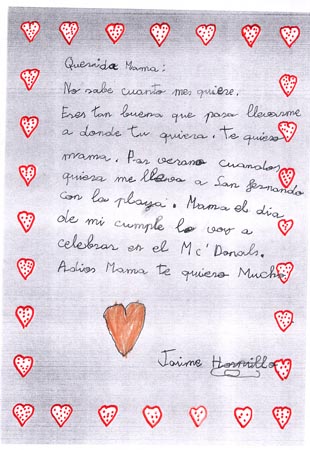 Querrida Mama:
No sabe cuanto mes quiere.
Eres tan buena que pasa llevarme
a donde tu quiera. Te quiero
mama. Por verano cuando
quiera me lleva a San fernando
con la playa. Mama el dia
de mi cumple lo voy a
celebrar en el Mc'Donals.
Adios Mama te quiero Mucho
Jaime Hornillo